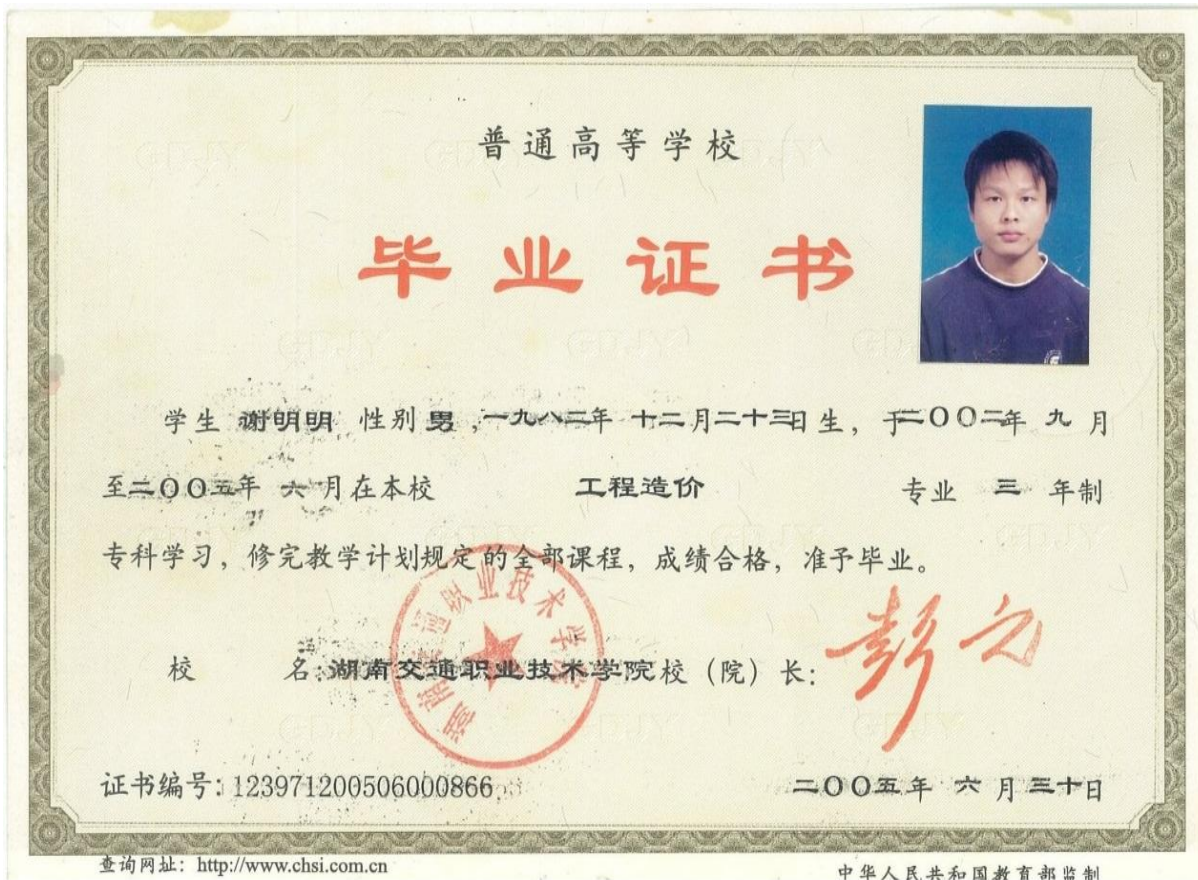 普通高等学校
毕业证书
学生 谢明明 性别 男，一九八二年 十二月二十三日生，于二〇〇二年 九 月
至二〇〇五年 六 月在本校 工程造价 专业 三 年制
专科学习，修完教学计划规定的全部课程，成绩合格，准予毕业。
校 名：湖南交通职业技术学院校（院）长：
湖南交通职业技术学院
证书编号：123971200506000866
二〇〇五年 六 月 三十日
查询网址：http://www.chsi.com.cn
中华人民共和国教育部监制